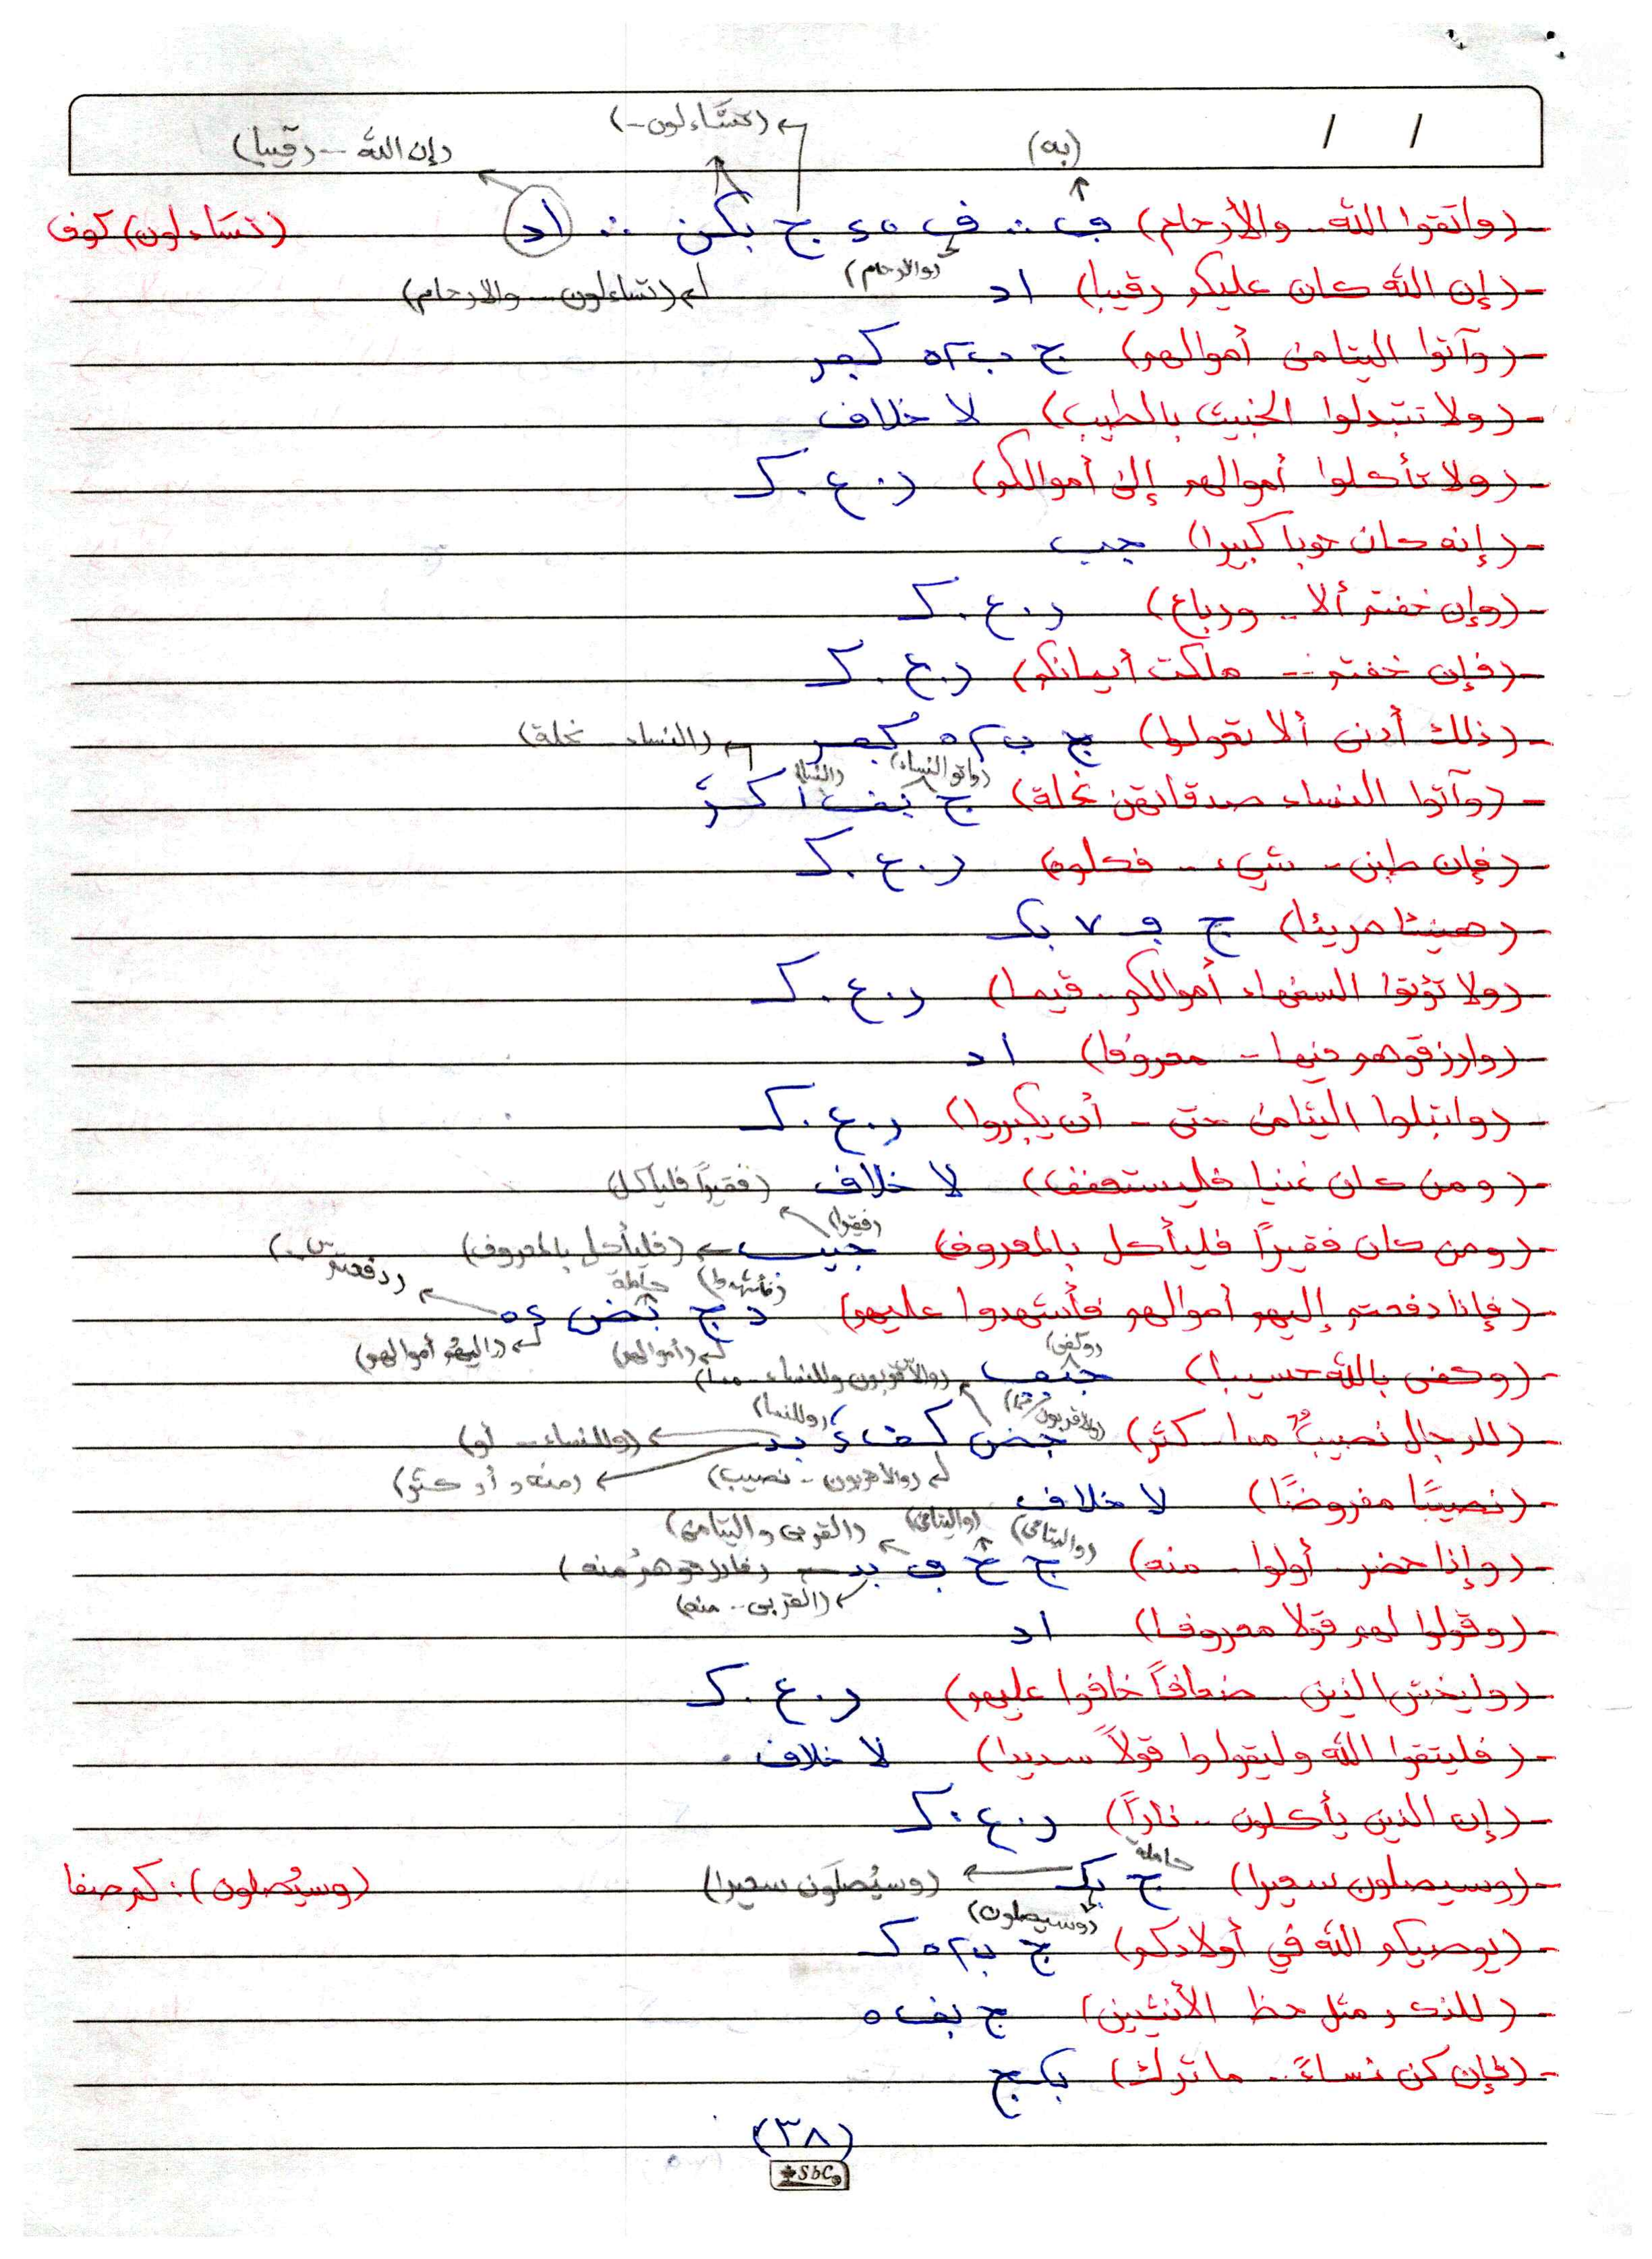 (تسّاءلون--)
(به)
(إن الله -- رقيبا)
- (واتقوا الله.. والأرحام) ف ∴ ف ٤٥ ج بكن ∴ اد (تسَاءلون) كوف
(والارحام)
- (إن الله كان عليكم رقيبا) اد (تساءلون -- والارحام)
- (وآتوا اليتامى أموالهم) ج ب ٥٢ كبصر
- (ولا تتبدلوا الخبيث بالطيب) لا خلاف
- (ولا تأكلوا أموالهم إلى أموالكم) ر.ع.ك
- (إنه كان حوبا كبيرا) جب
- (وإن خفتم ألا.. ورباع) ر.ع.ك
- (فإن خفتم -- ملكت أيمانكم) ر.ع.ك
- (ذلك أدنى ألا تعولوا) ج ب ٥٢ كبصر (النساء.. نحلة)
(واتوا النساء) (النسا)
- (وآتوا النساء صدقاتهن نحلة) ج
- (فإن طبن.. شيء.. فكلوه) ر.ع.ك
- (هنيئا مريئا) ج ف ٧ بك
- (ولا تؤتوا السفهاء أموالكم.. قيما) ر.ع.ك
- (وارزقوهم فيها - معروفا) اد
- (وابتلوا اليتامى حتى - أن يكبروا) ر.ع.ك
- (ومن كان غنيا فليستعفف) لا خلاف (فقيراً فلياكل)
(فقيرا)
- (ومن كان فقيراً فليأكل بالمعروف) جيب (فليأكل بالمعروف)
(فأشهدوا) حاملة (دفعتم..)
- (فإذا دفعتم إليهم أموالهم فأشهدوا عليهم) د ج بض ٤٥
(أموالهم) (إليهم أموالهم)
(وكفى)
- (وكفى بالله حسيبا) (والأقربون وللنساء.. مما)
(وللنسا)
- (للرجال نصيبٌ مما.. كثر) جض (وللنساء -- أو)
(والاقربون -- نصيب) (منه و أو كثر)
- (نصيبًا مفروضًا) لا خلاف
(واليتامى) (واليتامى) (القربى واليتامى)
- (وإذا حضر.. أولوا.. منه) ج خ ف بد (فارزقوهم منه)
(القربى.. منه)
- (وقولوا لهم قولا معروفا) اد
- (وليخش الذين.. ضعافاً خافوا عليهم) ر.ع.ك
- (فليتقوا الله وليقولوا قولاً سديدا) لا خلاف
- (إن الذين يأكلون.. ناراً) ر.ع.ك
حاملة
- (وسيصلون سعيرا) ج بك (وسيُصلَون سعيرا) (وسيُصلون): كم صفا
(وسيصلون)
- (يوصيكم الله في أولادكم) ج ب ٥٢ ك
- (للذكر مثل حظ الأنثيين) ج بف ٥
- (فإن كن نساءً.. ما ترك) بك ج
(٣٨)
SbC